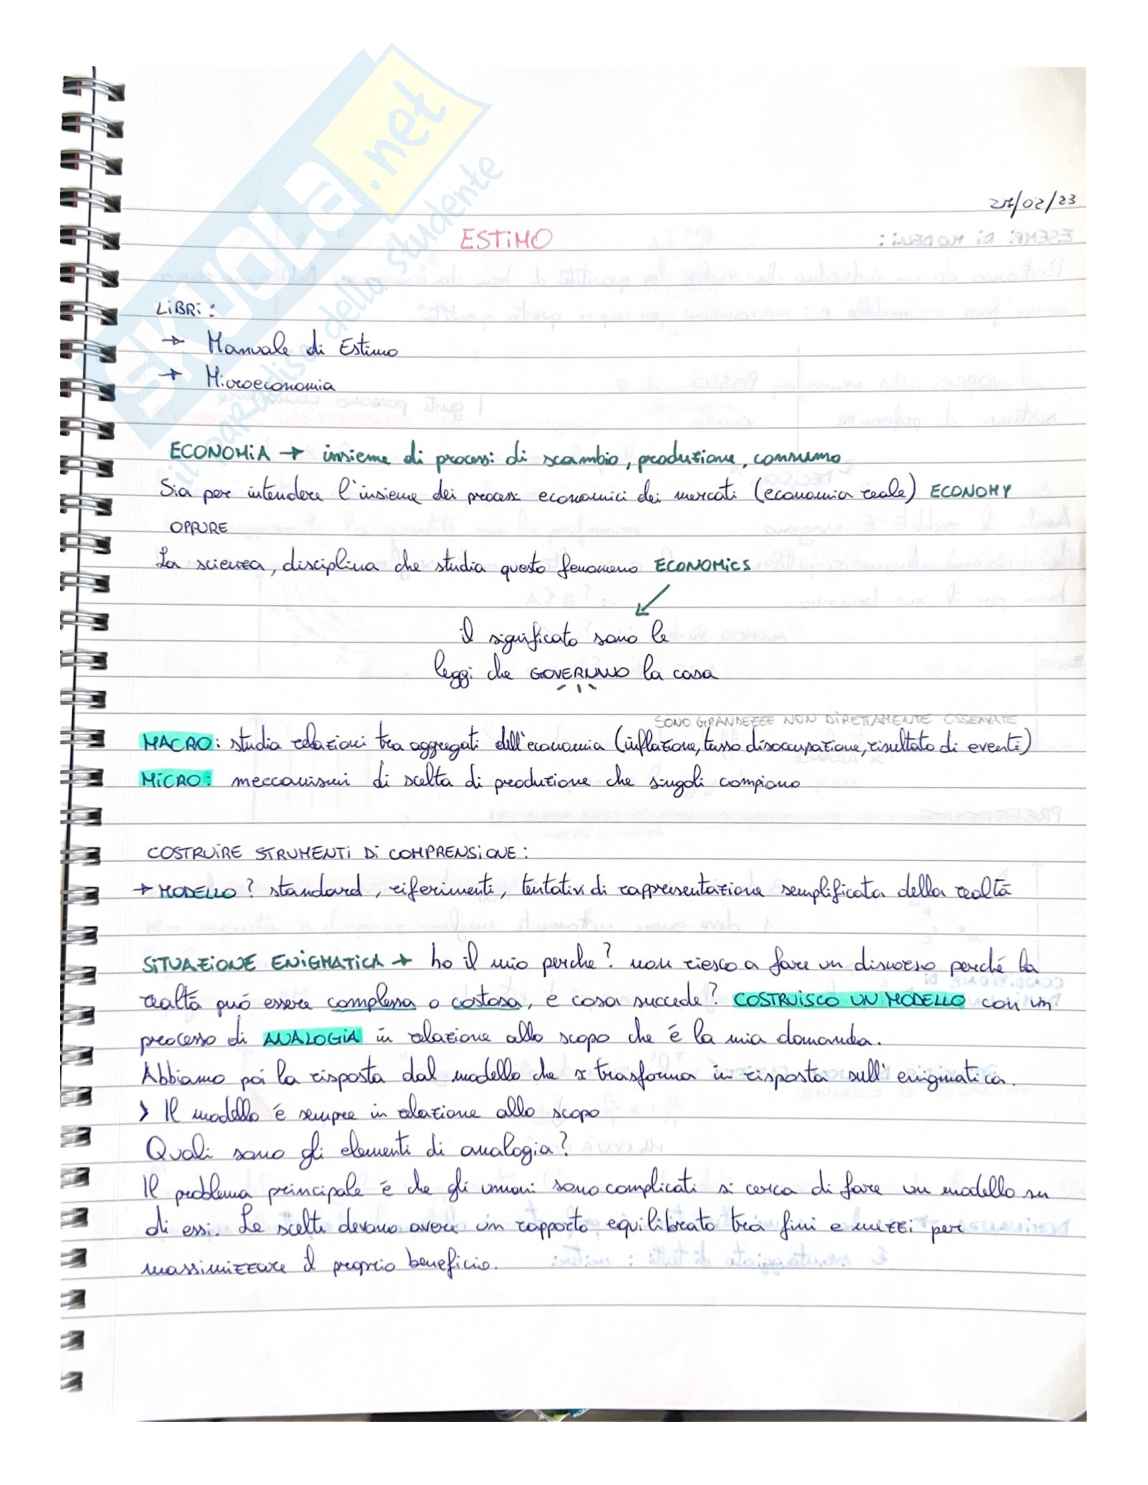 SKUOLA.net
il paradiso dello studente
27/02/23
ESTIMO
LIBRI:
→ Manuale di Estimo
→ Microeconomia
ECONOMIA → insieme di processi di scambio, produzione, consumo
Sia per intendere l'insieme dei processi economici dei mercati (economia reale) ECONOMY
OPPURE
La scienza, disciplina che studia questo fenomeno ECONOMICS
il significato sono le
leggi che GOVERNANO la casa
SONO GRANDEZZE NON DIRETTAMENTE OSSERVATE
MACRO: studia relazioni tra aggregati dell'economia (inflazione, tasso disoccupazione, risultato di eventi)
MICRO: meccanismi di scelta di produzione che singoli compiono
COSTRUIRE STRUMENTI DI COMPRENSIONE:
→ MODELLO? standard, riferimenti, tentativi di rappresentazione semplificata della realtà
SITUAZIONE ENIGMATICA → ho il mio perche? non riesco a fare un discorso perché la
realtà può essere complessa o costosa, e cosa succede? COSTRUISCO UN MODELLO con un
processo di ANALOGIA in relazione allo scopo che é la mia domanda.
Abbiamo poi la risposta dal modello che si trasforma in risposta sull'enigmatica.
> Il modello é sempre in relazione allo scopo
Quali sono gli elementi di analogia?
Il problema principale é che gli umani sono complicati si cerca di fare un modello su
di essi. Le scelte devono avere un rapporto equilibrato tra fini e mezzi per
massimizzare il proprio beneficio.